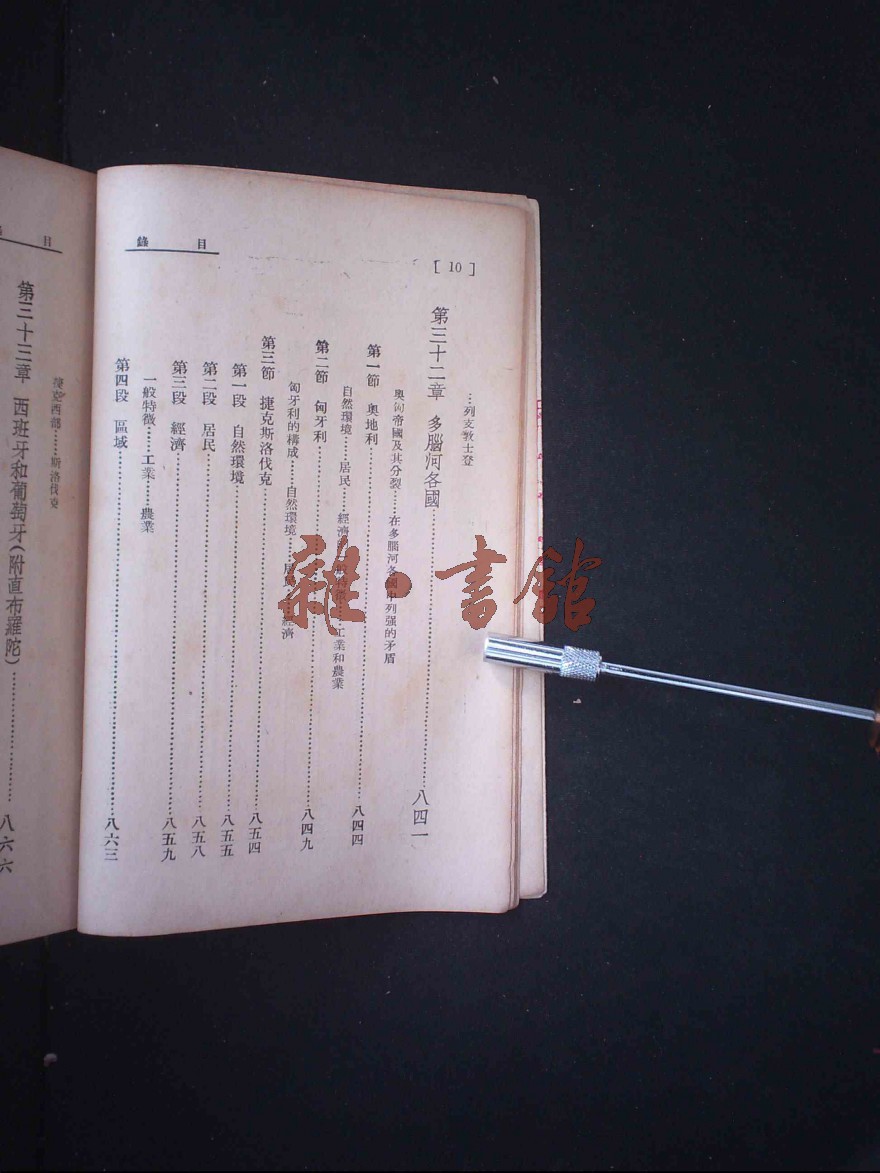 目錄
[ 10 ]
…列支敦士登
第三十二章 多腦河各國……八四一
奧匈帝國及其分裂……在多腦河各國中列强的矛盾
第一節 奧地利……八四四
自然環境……居民……經濟的一般特徵……工業和農業
第二節 匈牙利……八四九
匈牙利的構成……自然環境……居民……經濟
第三節 捷克斯洛伐克……八五四
第一段 自然環境……八五五
第二段 居民……八五八
第三段 經濟……八五九
一般特徵……工業……農業
第四段 區域……八六三
目
捷克西部……斯洛伐克
第三十三章 西班牙和葡萄牙(附直布羅陀)……八六六
雜·書館